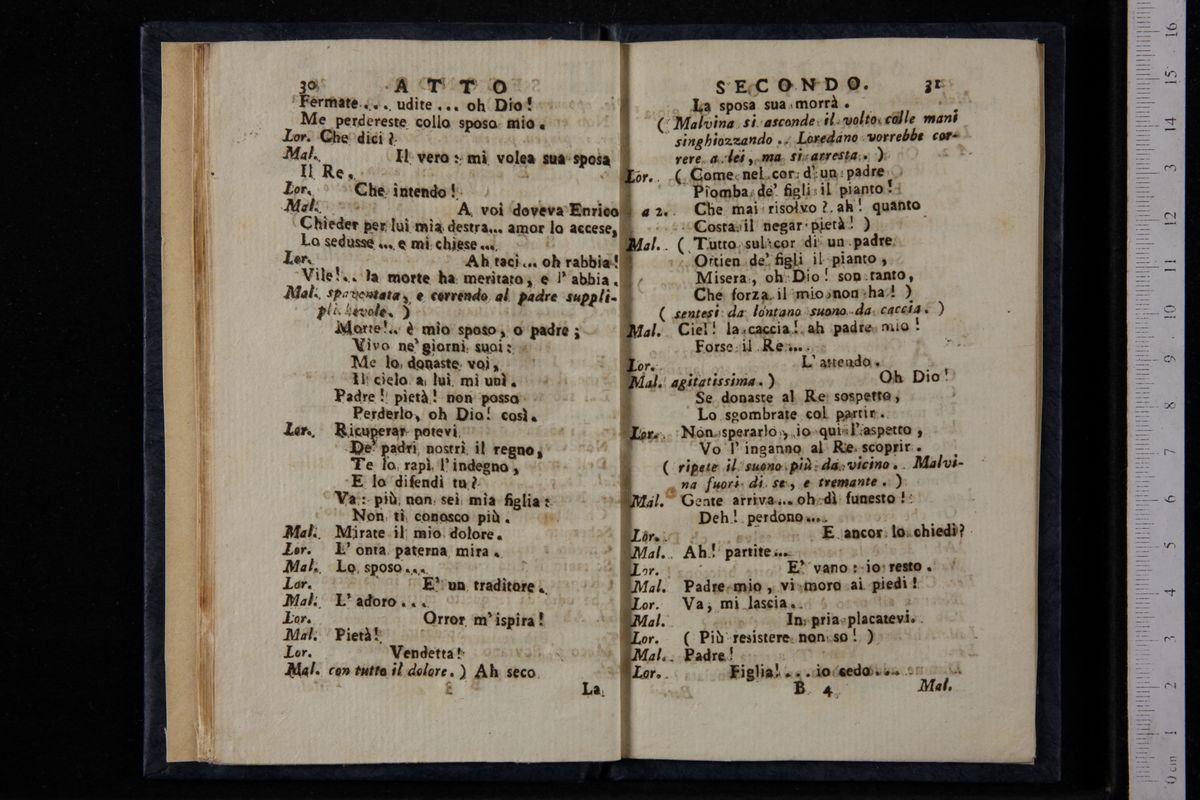 30 ATTO
Fermate.... udite... oh Dio!
Me perdereste collo sposo mio.
Lor. Che dici?
Mal. Il vero: mi volea sua sposa
Il Re.
Lor. Che intendo!
Mal. A voi doveva Enrico
Chieder per lui mia destra... amor lo accese,
Lo sedusse... e mi chiese...
Lor. Ah taci... oh rabbia!
Vile!.. la morte ha meritato, e l'abbia.
Mal. spaventata, e correndo al padre suppli-
plichevole. )
Morte!.. è mio sposo, o padre;
Vivo ne' giorni suoi:
Me lo donaste voi,
Il cielo a lui mi unì.
Padre! pietà! non posso
Perderlo, oh Dio! così.
Lor. Ricuperar potevi
De' padri nostri il regno,
Te lo rapì l'indegno,
E lo difendi tu?
Va: più non sei mia figlia:
Non ti conosco più.
Mal. Mirate il mio dolore.
Lor. L' onta paterna mira.
Mal. Lo sposo...
Lor. E' un traditore.
Mal. L' adoro...
Lor. Orror m'ispira!
Mal. Pietà!
Lor. Vendetta!
Mal. con tutto il dolore. ) Ah seco
La
SECONDO. 31
La sposa sua morrà.
( Malvina si asconde il volto colle mani
singhiozzando.. Loredano vorrebbe cor-
rere a lei, ma si arresta. )
Lor. ( Come nel cor d' un padre
Piomba de' figli il pianto!
a 2. Che mai risolvo? ah! quanto
Costa il negar pietà! )
Mal. ( Tutto sul cor di un padre
Ottien de' figli il pianto,
Misera, oh Dio! son tanto,
Che forza il mio non ha! )
( sentesi da lontano suono da caccia. )
Mal. Ciel! la caccia! ah padre mio!
Forse il Re....
Lor. L' attendo.
Mal. agitatissima. ) Oh Dio!
Se donaste al Re sospetto,
Lo sgombrate col partir.
Lor. Non sperarlo, io qui l'aspetto,
Vo l' inganno al Re scoprir.
( ripete il suono più da vicino. Malvi-
na fuori di se, e tremante. )
Mal. Gente arriva... oh dì funesto!
Deh! perdono....
Lor. E ancor lo chiedi?
Mal. Ah! partite...
Lor. E' vano: io resto.
Mal. Padre mio, vi moro ai piedi!
Lor. Va, mi lascia.
Mal. In pria placatevi.
Lor. ( Più resistere non so! )
Mal. Padre!
Lor. Figlia!... io cedo....
B 4 Mal.
0 cm 1 2 3 4 5 6 7 8 9 10 11 12 13 14 15 16